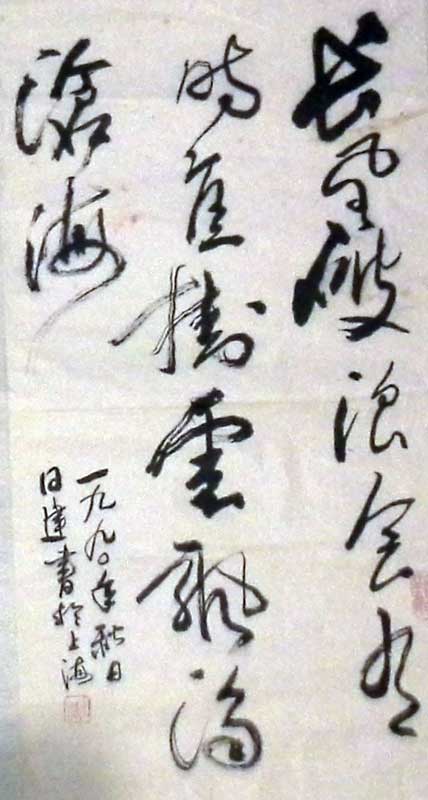 長風破浪会有
時直掛雲帆濟
滄海
一九九〇年秋日
日達書於上海